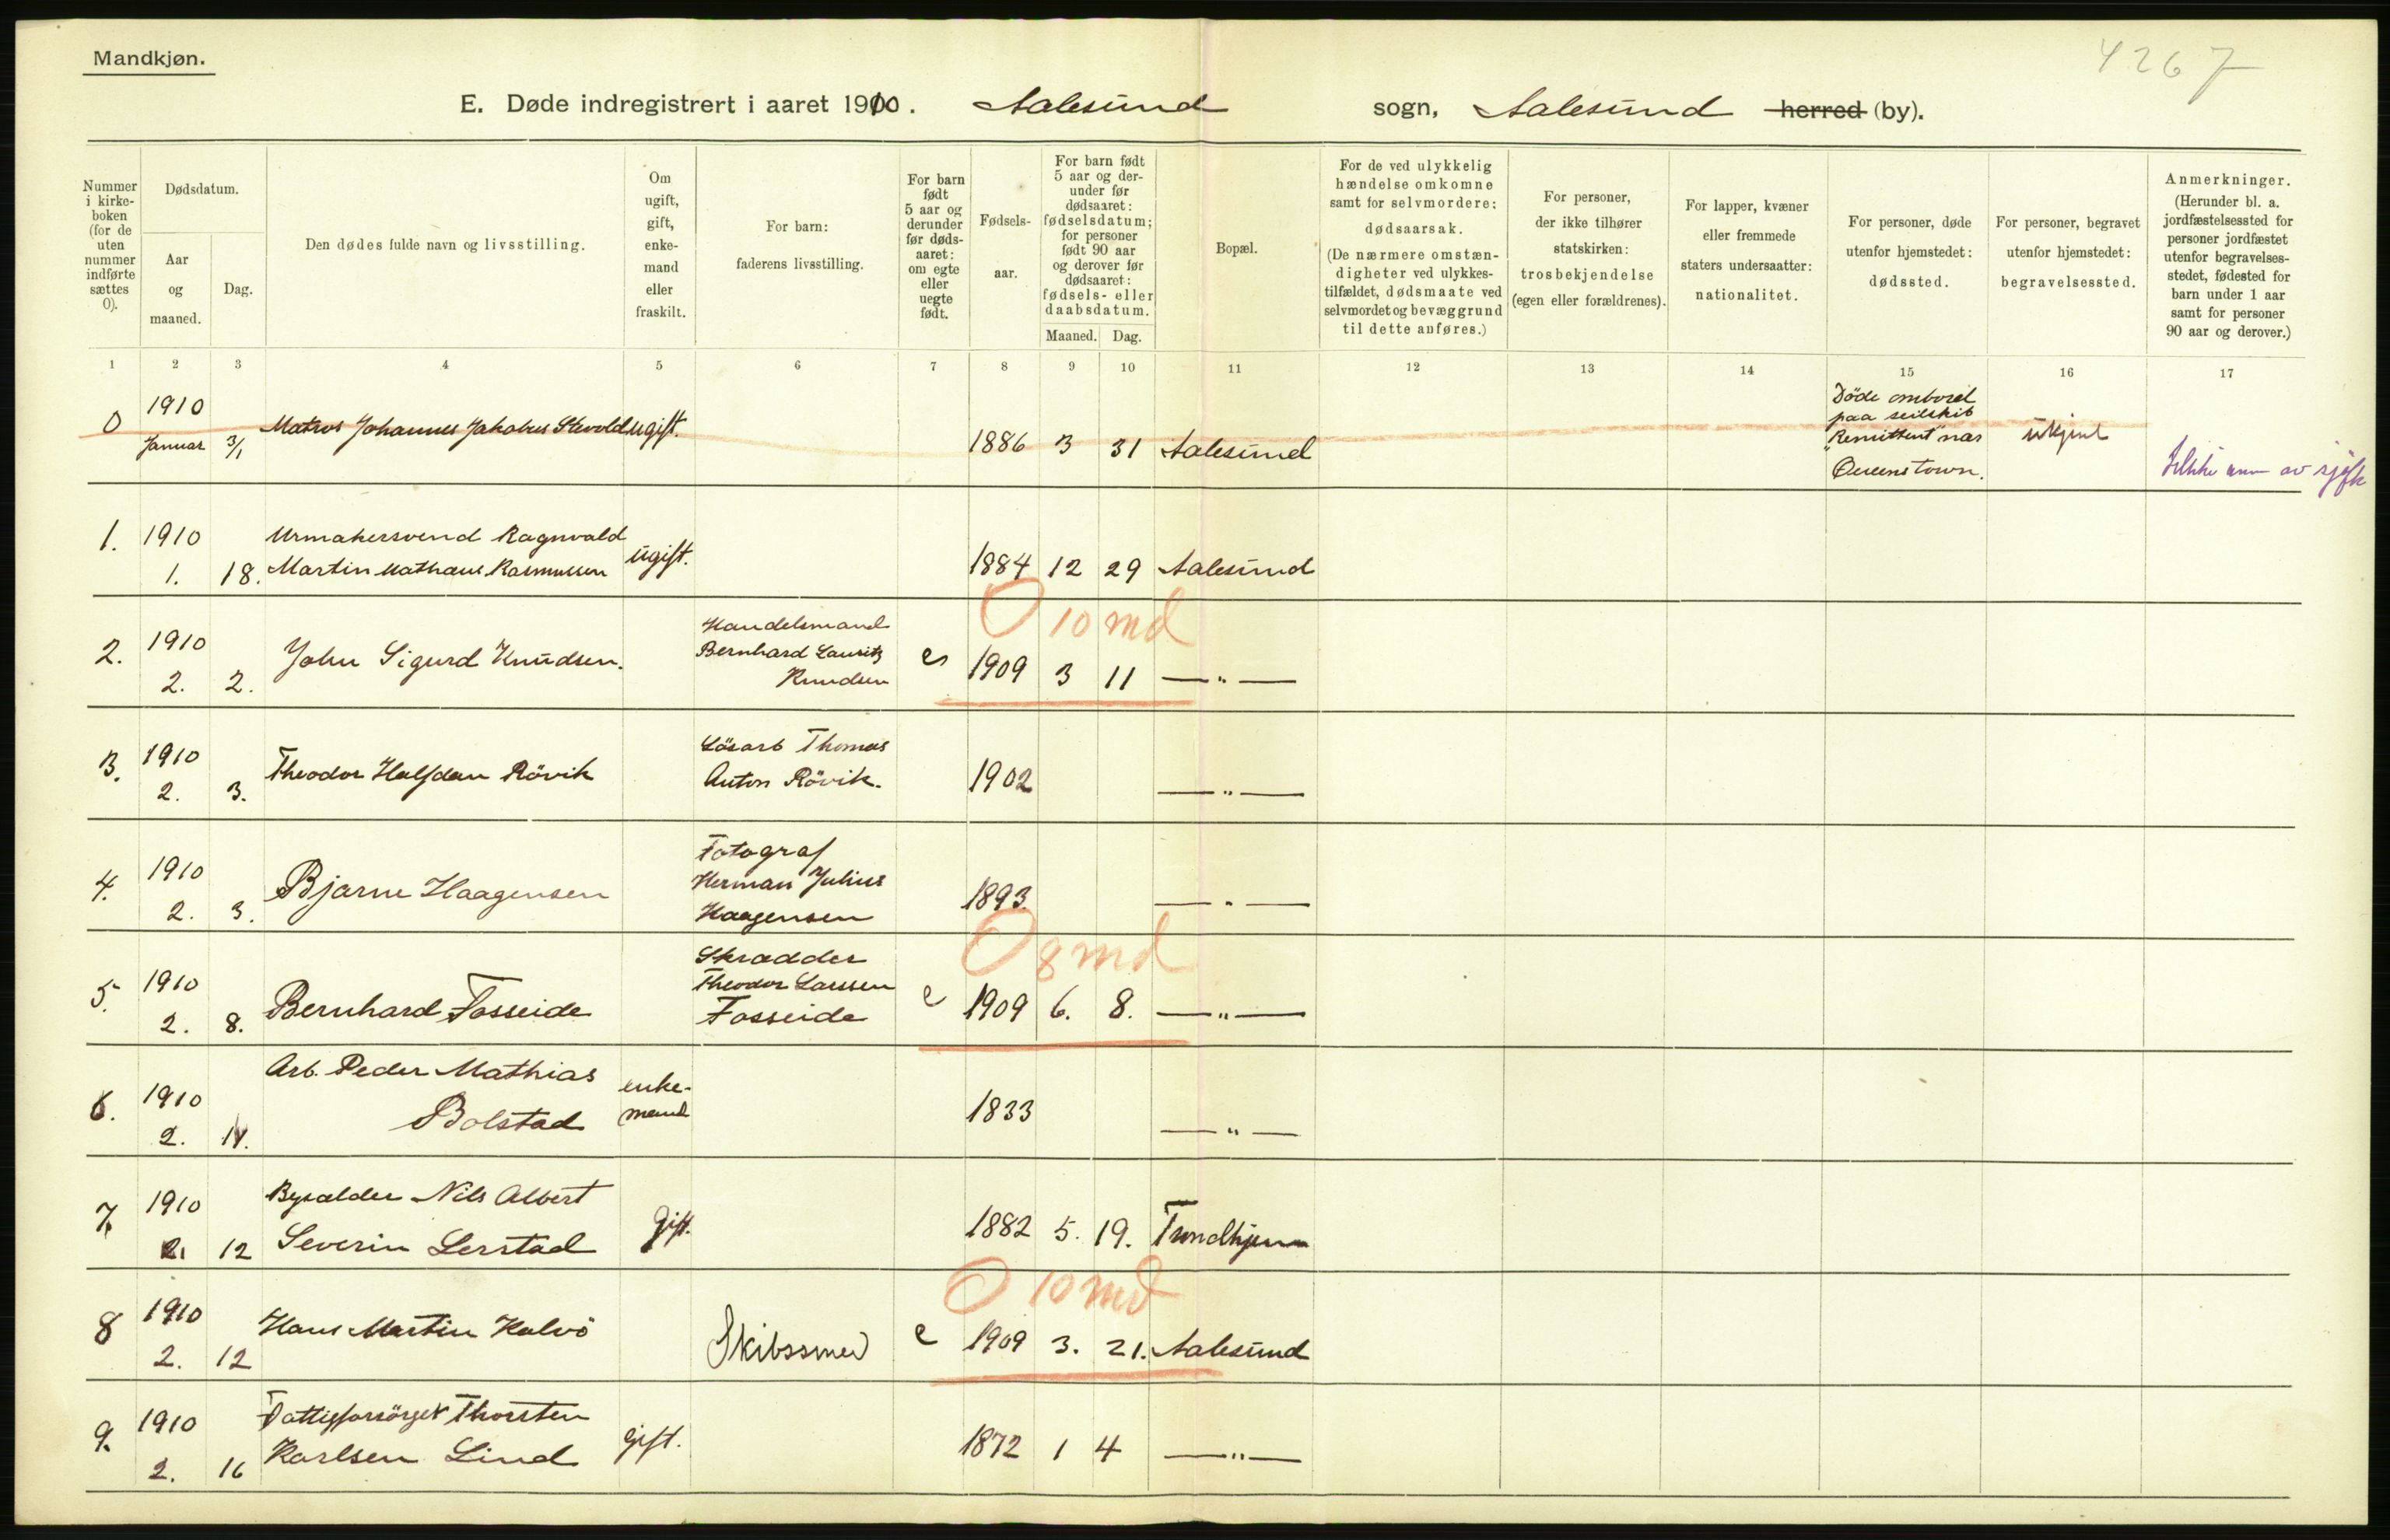 Mandkjøn.
4267
E. Døde indregistrert i aaret 1910. Aalesund sogn, Aalesund herred (by).
Nummer i kirke-boken (for de uten nummer indførte sættes 0).
Dødsdatum.
Aar og maaned.
Dag.
Den dødes fulde navn og livsstilling.
Om ugift, gift, enke-mand eller fraskilt.
For barn: faderens livsstilling.
For barn født 5 aar og derunder før døds-aaret: om egte eller uegte født.
Fødsels-aar.
For barn født 5 aar og der-under før dødsaaret: fødselsdatum; for personer født 90 aar og derover før dødsaaret: fødsels- eller daabsdatum.
Maaned. Dag.
Bopæl.
For de ved ulykkelig hændelse omkomne samt for selvmordere: dødsaarsak. (De nærmere omstæn-digheter ved ulykkes-tilfældet, dødsmaate ved selvmordet og bevæggrund til dette anføres.)
For personer, der ikke tilhører statskirken: trosbekjendelse (egen eller forældrenes).
For lapper, kvæner eller fremmede staters undersaatter: nationalitet.
For personer, døde utenfor hjemstedet: dødssted.
For personer, begravet utenfor hjemstedet: begravelsessted.
Anmerkninger. (Herunder bl. a. jordfæstelsessted for personer jordfæstet utenfor begravelses-stedet, fødested for barn under 1 aar samt for personer 90 aar og derover.)
1 2 3 4 5 6 7 8 9 10 11 12 13 14 15 16 17
0 1910 Januar 3/1 Matros Johannes Jakobus ugift. 1886 3 31 Aalesund
Döde ombord
paa seilskib
"Remittent" nær
Queenstown.
ukjent
av sjøfk
1. 1910 Urmakersvend Ragnvald
1. 18. Martin Mathæus Rasmussen ugift. 1884 12 29 Aalesund
0 10 md
2. 1910 2. 2. John Sigurd Knudsen.
Handelsmand
Bernhard Lauritz
Knudsen
e 1909 3 11 —"—
3. 1910 2. 3. Theodor Halfdan Rövik
Lösarb Thomas
Anton Rövik.
1902 —"—
4. 1910 2. 3. Bjarne Haagensen
Fotograf
Herman Julius
Haagensen
1893 —"—
0 8 md
5. 1910 2. 8. Bernhard Fosseide
Skrædder
Theodor Larssen
Fosseide
e 1909 6. 8. —"—
6. 1910 2. 11. Arb. Peder Mathias
Bolstad
enke-
mand
1833 —"—
7. 1910 Nils Albert
2. 12 Severin Lerstad gift. 1882 5. 19. Trondhjem
0 10 md
8 1910 2. 12 Hans Martin Kalvö Skibssmed e 1909 3. 21. Aalesund
9. 1910 Fattigforsörget Thorsten
2. 16 Karlsen Lind gift. 1872 1 4 —"—